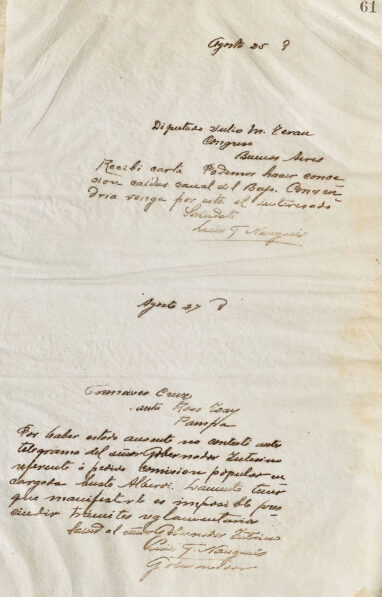 61
Agosto 25 8
Diputado Julio M. Teran
Congreso
Buenos Aires
Recibi carta Podemos hacer conce
sion caidas canal del Bajo. Convan
dria venga por este el interesado
Saludalo
Luis F. Nougués
Agosto 27 8
Francisco Cruz
Toay
Pampa
Por haber estado ausente no contesté antes
telegrama del señor Gobernador Interino
referente á pedido comision popular en
cargada Alberdi. Lamento tener
que manifestarle es imposible pres
cindir trámites reglamentarios
Saludo al señor Gobernador Interino
Luis F. Nougués
Gobernador